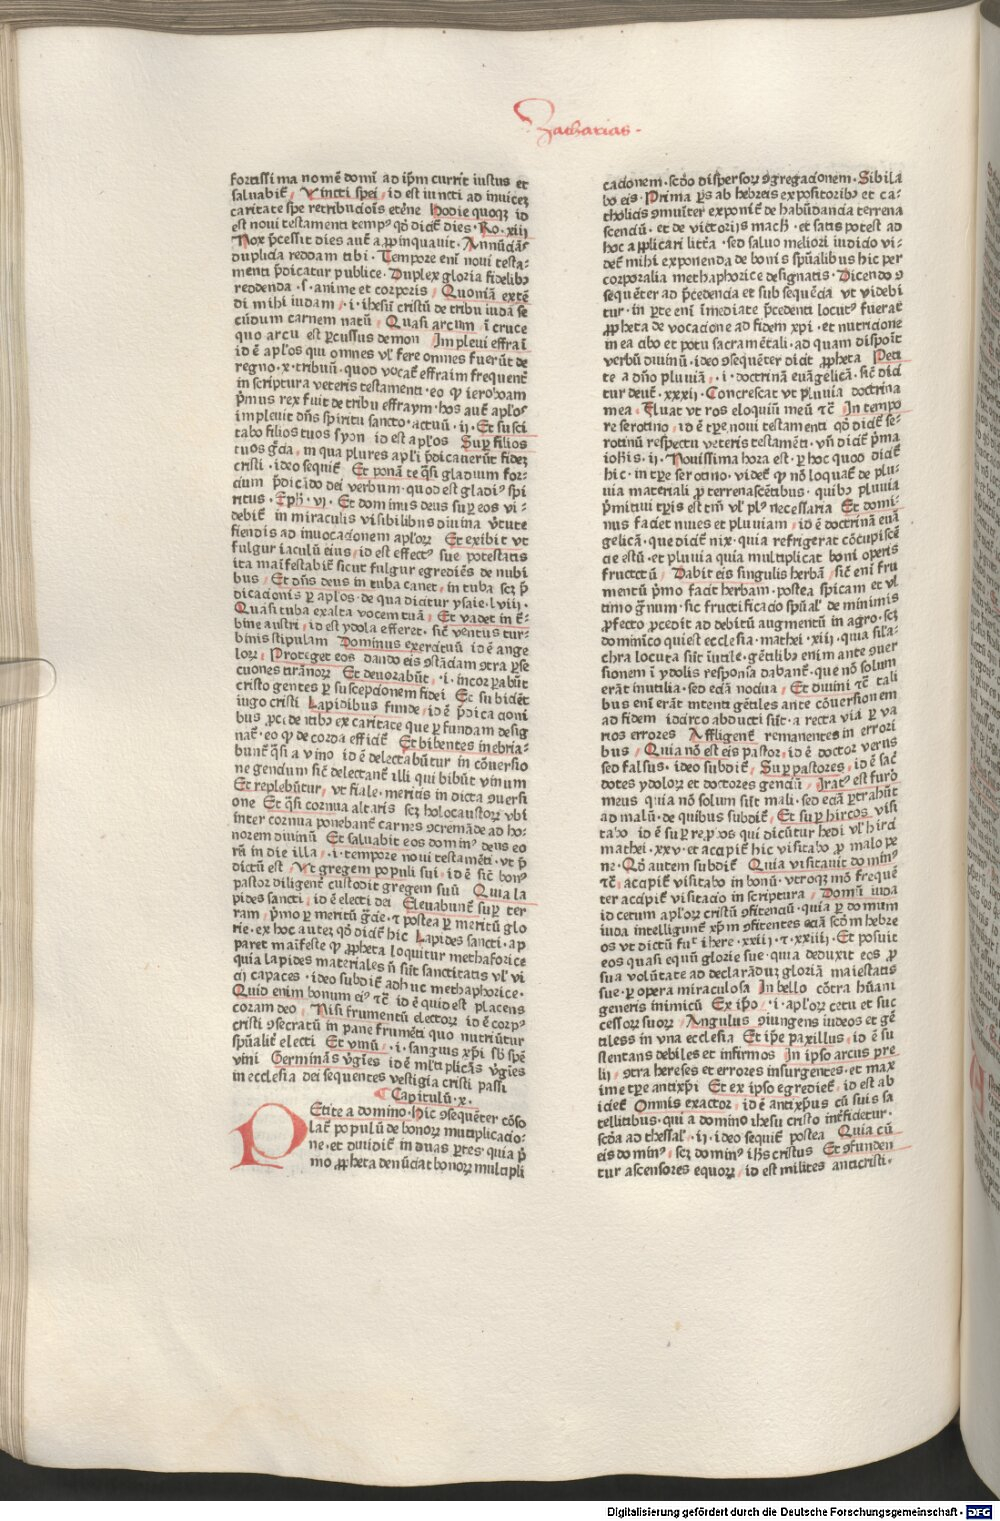 Zacharias.
fortissima nomē domī ad ip̄m currit iustus et
saluabit̄. Vincti spei, id est iuncti ad inuicez
caritate spe retribucōis etēne Hodie quoqz id
est noui testamenti tempꝰ qd̄ dicit̄ dies. Ro. xiij
Nox p̄cessit dies aut̄ appinquauit. Annūciās
duplicia reddam tibi. Tempore enī noui testa-
menti p̄dicatur publice. Duplex gloria fidelibꝫ
reddenda .s. anime et corporis Quoniā extē
di mihi iudam .i. ihesū cristū de tribu iuda se
cūdum carnem natū Quasi arcum ī cruce
quo arcu est percussus demon Impleui effraī
id ē ap̄los qui omnes vl̄ fere omnes fuerūt de
regno .x. tribuū. quod vocat̄ effraim frequent̄
in scriptura veteris testamenti. eo ꝙ ieroboam
p̄mus rex fuit de tribu effraym. hos aut̄ ap̄los
impleuit dn̄s spiritu sancto. actuū .ij. Et susci
tabo filios tuos syon id est ap̄los Sup̱ filios
tuos gc̄ia, in qua plures ap̄li p̄dicauerūt fidez
cristi. ideo sequit̄ Et ponā te q̄si gladium for-
cium p̄dicādo dei verbum. quod est gladiꝰ spi
ritus. Eph. vj. Et dominus deus sup̱ eos vi-
debit̄ in miraculis visibilibus diuina v̄tute
fiendis ad inuocacionem ap̄lorꝝ Et exibit vt
fulgur iaculū eius, id est effectꝰ sue potestatis
ita maīfestabit̄ sicut fulgur egrediēs de nubi
bus, Et dn̄s deus in tuba canet, in tuba scꝫ p̄
dicacionis ꝑ ap̄los. de qua dicitur ysaie. lviij.
Quasi tuba exalta vocem tuā, Et vadet in t̄-
bine austri, id est ydola efferet. sic̄ ventus tur-
binis stipulam Dominus exercituū id ē ange
lorꝝ, Proteget eos dando eis ↄstāciam ↄtra ꝑse
cuciones tirānorꝝ Et deuorabūt .i. incorꝑabūt
cristo gentes ꝑ suscepcionem fidei Et subiciēt
iugo cristi Lapidibus funde, id ē p̄dicacioni
bus ꝓcedētibꝫ ex caritate que ꝑ fundam desig
nat̄. eo ꝙ de corda efficit̄ Et bibentes inebria-
bunt̄ q̄si a vino id ē delectabūtur in cōuersio
ne gencium sic̄ delectant̄ illi qui bibūt vinum
Et replebūtur, vt fiale. meritis in dicta ↄuersi
one Et q̄si cornua altaris scꝫ holocaustorꝝ vbi
inter cornua ponebant̄ carnes ↄcremāde ad ho-
norem diuinū Et saluabit eos dominꝰ deus eo
rū in die illa .i. tempore noui testamēti. vt p̄
dictū est, Vt gregem populi sui, id ē sic̄ bonꝰ
pastor diligent̄ custodit gregem suū Quia la
pides sancti, id ē electi dei Eleuabunt̄ sup̱ ter
ram, p̄mo ꝑ meritū gr̄cie. ⁊ postea ꝑ meritū glo
rie. ex hoc autez qd̄ dicit̄ hic Lapides sancti. ap
paret maīfeste ꝙ ꝓpheta loquitur methaforice
quia lapides materiales n̄ sūt sanctitatis vl̄ vi
cij capaces. ideo subdit̄ adhuc methaphorice.
Quid enim bonum eiꝰ ⁊c̄ id ē quid est placens
coram deo, Nisi frumentū electorꝝ id ē corpꝰ
cristi ↄsecratū in pane frumēti quo nutriūtur
spūalit̄ electi Et vinū .i. sanguis xp̄i sb̄ spē
vini Germināns v̄gīes id ē ml̄tiplicās v̄gīes
in ecclesia dei sequentes vestigia cristi passi
Capitulū .x.
PEtite a domino. Hic ↄsequēter cōso
lat̄ populū de bonorꝝ multiplicacio-
ne. et diuidit̄ in duas ꝑtes. quia p̄
mo ꝓpheta denūciat bonorꝝ multipli
cacionem. scd̄o dispersorꝝ ↄgregacionem. Sibila
bo eis. Prima ꝑs ab hebreis expositoribꝫ et ca-
tholicis ↄmuīter exponit̄ de habūdancia terrena
scenciū. et de victorijs mach̄. et satis potest ad
hoc applicari litt̄a. sed saluo meliori iudicio vi-
det̄ mihi exponenda de bonis spūalibus hic per
corporalia methaphorice designatis. Dicendo ↄ
sequēter ad p̄cedencia et subsequēcia vt videbi
tur. in ꝑte enī īmediate p̄cedenti locutꝰ fuerat
ꝓpheta de vocacione ad fidem xp̄i. et nutricione
in ea cibo et potu sacramētali. ad quam disponīt
verbū diuinū. ideo ↄsequēter dicit ꝓpheta Peti
te a dn̄o pluuiā, .i. doctrinā euāgelicā. sic̄ dici
tur deut̄. xxxij. Concrescat vt pluuia doctrina
mea. Fluat vt ros eloquiū meū ⁊c̄ In tempo
re serotino, id ē tp̱e noui testamenti qd̄ dicit̄ se-
rotinū respectu veteris testamēti. vn̄ dicit̄ p̄ma
ioh̄is. ij. Nouissima hora est. ꝑ hoc quod dicit̄
hic. in tp̱e serotino. videt̄ ꝙ nō loquat̄ de plu-
uia materiali ꝓ terrenascētibus. quibꝫ pluuia
p̄mitiui tp̱is est tm̄ vl̄ plꝰ necessaria Et domi-
nus faciet niues et pluuiam, id ē doctrinā euā
gelicā. que dicit̄ nix. quia refrigerat cōcupiscē
cie estū. et pluuia quia multiplicat boni operis
fructū, Dabit eis singulis herbā, sic̄ enī fru
mentū p̄mo facit herbam. postea spicam et vl
timo g̓num. sic fructificacio spūal̓ de minimis
ꝓfecto ꝓcedit ad debitū augmentū in agro. scꝫ
dominico qui est ecclesia. mathei. xiij. quia sil̓a-
chra locuta sūt inutile. gētilibꝫ enim ante ↄuer
sionem ī ydolis responsa dabant̄. que nō solum
erāt inutilia. sed eciā nociua, Et diuini ⁊c̄ tali
bus enī erāt intenti gētiles ante cōuersionem
ad fidem idcirco abducti sūt. a recta via ꝑ va
rios errores Affligent̄ remanentes in errori
bus, Quia nō est eis pastor, id ē doctor verus
sed falsus. ideo subdit̄, Sup̱ pastores, id ē sac̄
dotes ydolorꝝ et doctores genciū, Iratꝰ est furor
meus quia nō solum sūt mali. sed eciā ꝑtrahūt
ad malū. de quibus subdit̄ Et sup̱ hircos visi
tabo id ē sup̱ rep̱bos qui dicūtur hedi vl̄ hirci
mathei. xxv. et accipit̄ hic visitabo ꝓ malo pe
ne. Qd̄ autem subdit̄ Quia visitauit dominꝰ
⁊c̄, accipit̄ visitabo in bonū. vtroqꝫ mō frequē
ter accipit̄ visitacio in scriptura, Domū iuda
id cetum ap̄lorꝝ cristū ↄfitenciū. quia ꝑ domum
iuda intelligunt̄ xp̄m ↄfitentes eciā scd̄m hebre
os vt dictū fuit ihere. xxij. ⁊. xxiij. Et posuit
eos quasi equū glorie sue. quia deduxit eos ꝓ
sua volūtate ad declarādū gloriā maiestatis
sue. ꝑ opera miraculosa In bello cōtra hūani
generis inimicū Ex ip̄o .i. ap̄lorꝝ cetu et suc
cessorꝝ suorꝝ, Angulus ↄiungens iudeos et gē
tiles in vna ecclesia Et ip̄e paxillus, id ē su
stentans debiles et infirmos In ipso arcus pre
lij, ↄtra hereses et errores insurgentes. et max
ime tp̱e antixp̄i Et ex ipso egrediet̄, id est ab
iciet̄ Omnis exactor, id ē antixp̄us cū suis sa
tellitibus. qui a domino ihesu cristo int̄ficietur.
scd̄a ad thessal̓. ij. ideo sequit̄ postea Quia cū
eis dominꝰ, scꝫ dominꝰ ih̄s cristus Et ↄfunden
tur ascensores equorꝝ, id est milites anticristi.
Digitalisierung gefördert durch die Deutsche Forschungsgemeinschaft - DFG